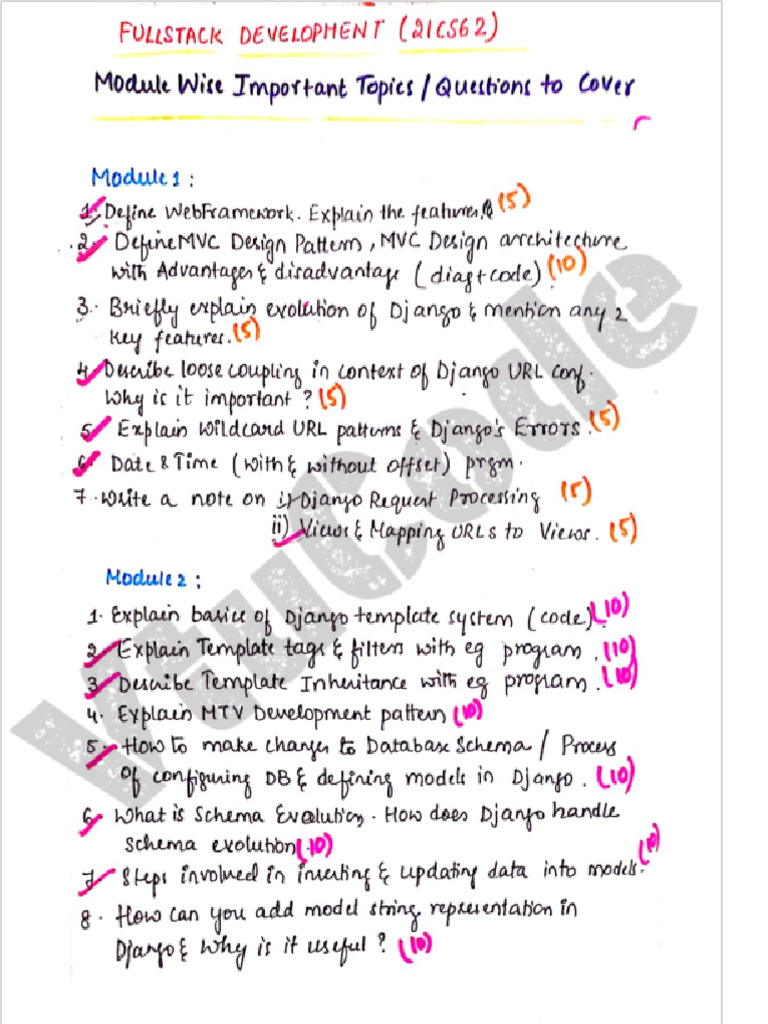 FULLSTACK DEVELOPMENT (21CS62)
Module Wise Important Topics / Questions to Cover
Module 1 :
1. Define WebFramework. Explain the features. (5)
2. Define MVC Design Pattern, MVC Design architecture
with Advantages & disadvantage (diag + code) (10)
3. Briefly explain evolution of Django & mention any 2
key features. (5)
4. Describe loose coupling in context of Django URL conf.
Why is it important ? (5)
5. Explain Wildcard URL patterns & Django's Errors. (5)
6. Date & Time (with & without offset) prgm.
7. Write a note on i) Django Request Processing (5)
ii) Views & Mapping URLs to Views. (5)
Module 2 :
1. Explain basics of Django template system (code). (10)
2. Explain Template tags & filters with eg program. (10)
3. Describe Template Inheritance with eg program. (10)
4. Explain MTV Development pattern (10)
5. How to make changes to Database Schema / Process
of configuring DB & defining models in Django. (10)
6. What is Schema Evolution. How does Django handle
schema evolution (10)
7. Steps involved in inserting & updating data into models. (10)
8. How can you add model string representation in
Django & Why is it useful ? (10)
VTUCode